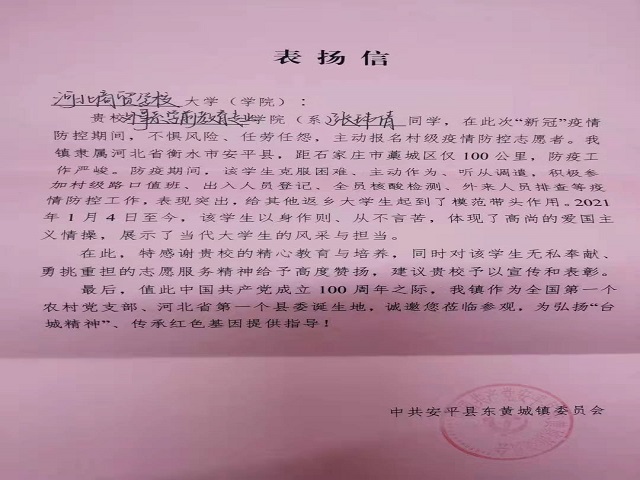 表扬信
河北商贸学校大学（学院）：
贵校学前教育专业学院（系）张肆倩同学，在此次“新冠”疫情
防控期间，不惧风险、任劳任怨，主动报名村级疫情防控志愿者。我
镇隶属河北省衡水市安平县，距石家庄市藁城区仅100公里，防疫工
作严峻。防疫期间，该学生克服困难、主动作为、听从调遣，积极参
加村级路口值班、出入人员登记、全员核酸检测、外来人员排查等疫
情防控工作，表现突出，给其他返乡大学生起到了模范带头作用。2021
年1月4日至今，该学生以身作则、从不言苦，体现了高尚的爱国主
义情操，展示了当代大学生的风采与担当。
在此，特感谢贵校的精心教育与培养，同时对该学生无私奉献、
勇挑重担的志愿服务精神给予高度赞扬，建议贵校予以宣传和表彰。
最后，值此中国共产党成立100周年之际，我镇作为全国第一个
农村党支部、河北省第一个县委诞生地，诚邀您莅临参观，为弘扬“台
城精神”、传承红色基因提供指导！
中共安平县东黄城镇委员会